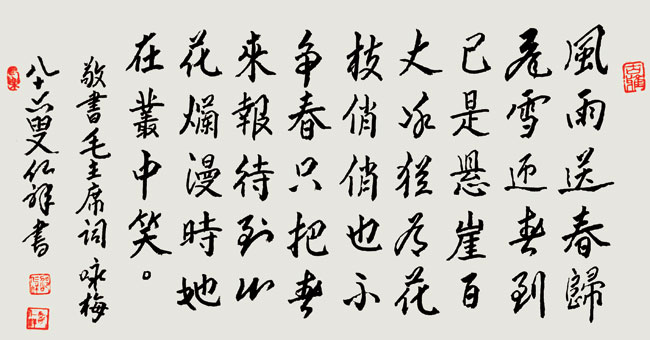 風雨送春歸
飛雪迎春到
已是懸崖百
丈冰猶有花
枝俏俏也不
争春只把春
來報待到山
花爛漫時她
在叢中笑。
敬書毛主席詞 咏梅
八十六叟祥書